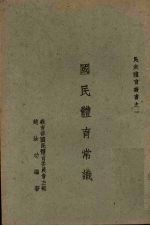 民衆體育叢書之一
國民體育常識
教育部國民體育委員會主編
趙汝功編著